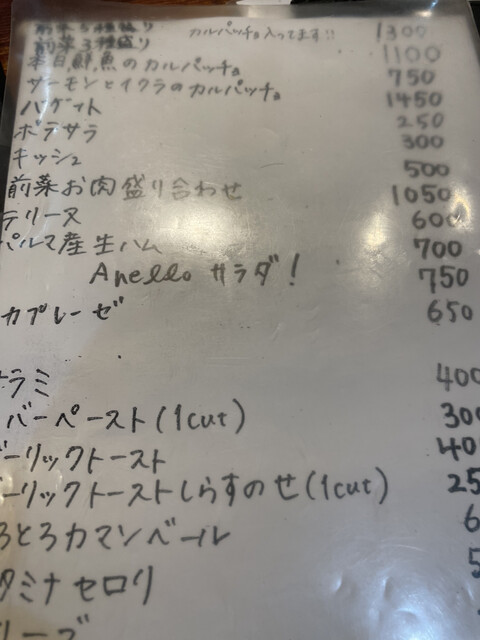 前菜5種盛り カルパッチョ入ってます!! 1300
前菜3種盛り 1100
本日鮮魚のカルパッチョ 750
サーモンとイクラのカルパッチョ 1450
バゲット 250
ポテサラ 300
キッシュ 500
前菜お肉盛り合わせ 1050
テリーヌ 600
パルマ産生ハム 700
Anelloサラダ! 750
カプレーゼ 650
ラミ 400
バーペースト(1cut) 300
ーリックトースト 40
ーリックトーストしらすのせ(1cut) 25
ろとろカマンベール 6
タミナセロリ 5
リーブ